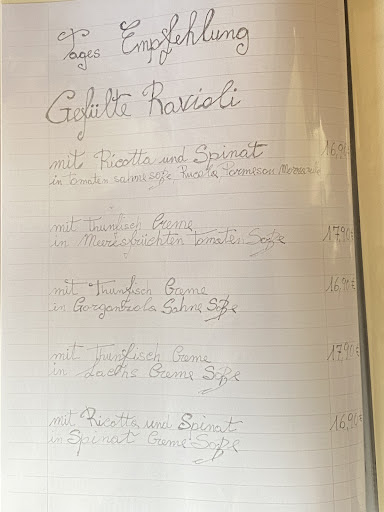 Tages Empfehlung
Gefülte Ravioli
mit Ricotta und Spinat 16,90
in tomaten sahne soße Rucola Parmesan
mit Thunfisch Creme
in Meeresfrüchten tomaten Soße 17,90€
mit Thunfisch Creme 16,90€
in Gorgonzola Sahne Soße
mit Thunfisch Creme 17,90€
in Lachs Creme Soße
mit Ricotta und Spinat 16,90€
in Spinat Creme Soße